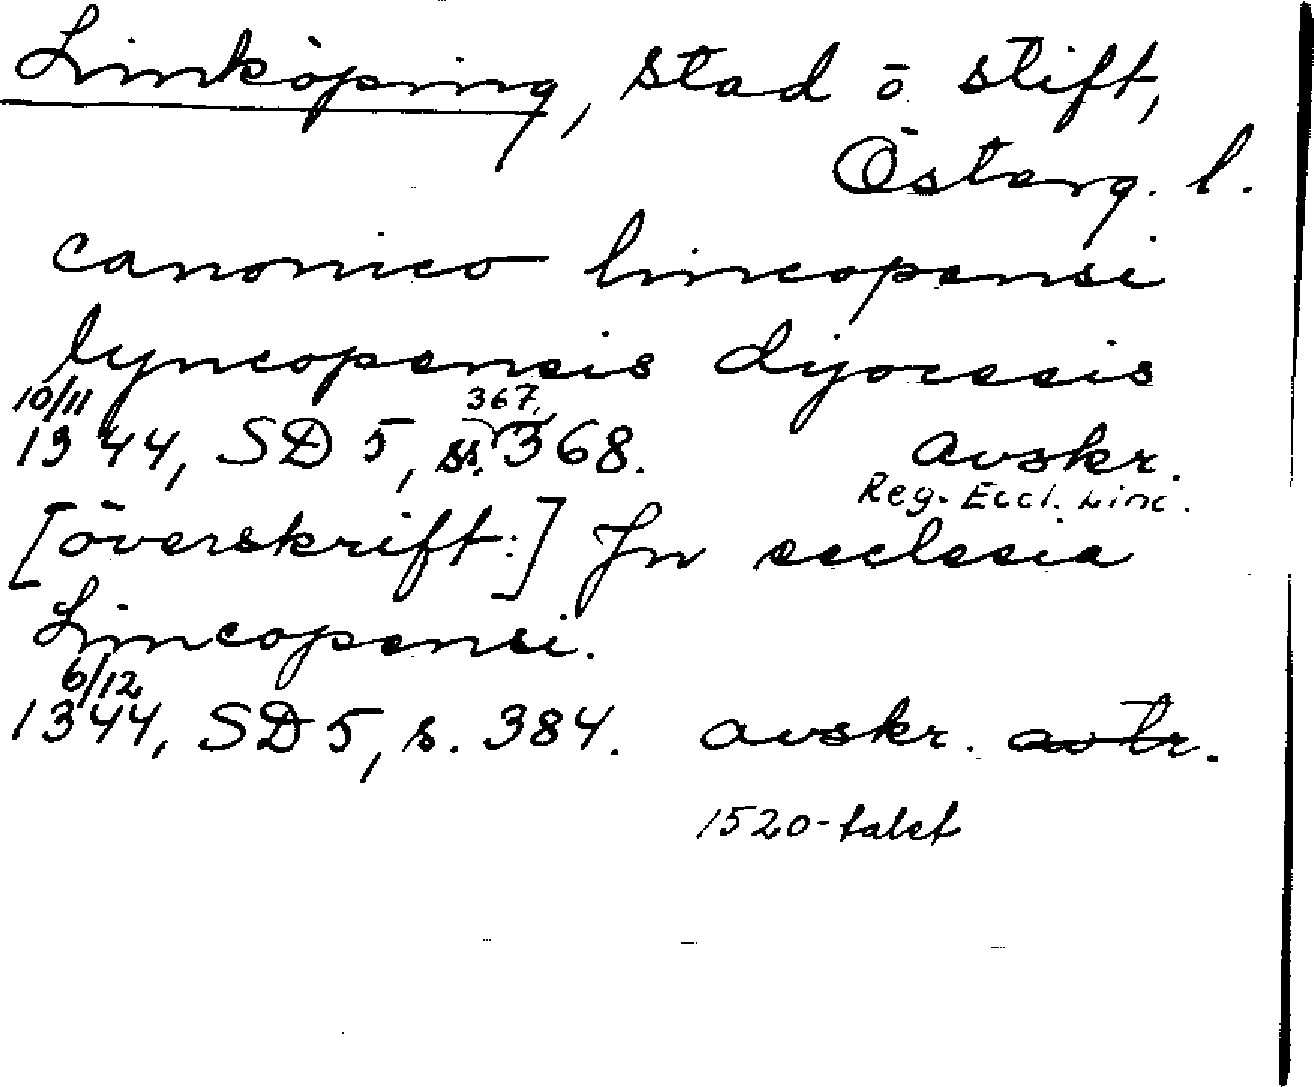 Linköping, stad o stift,
Österg. l.
canonico lincopensi
lyncopensis dyocesis
10/11
1344, SD 5, ss. 367, 368. avskr.
Reg. Eccl. Linc.
[överskrift:] In ecclesia
Lincopensi.
6/12
1344, SD 5, s. 384. avskr. avtr.
1520-talet